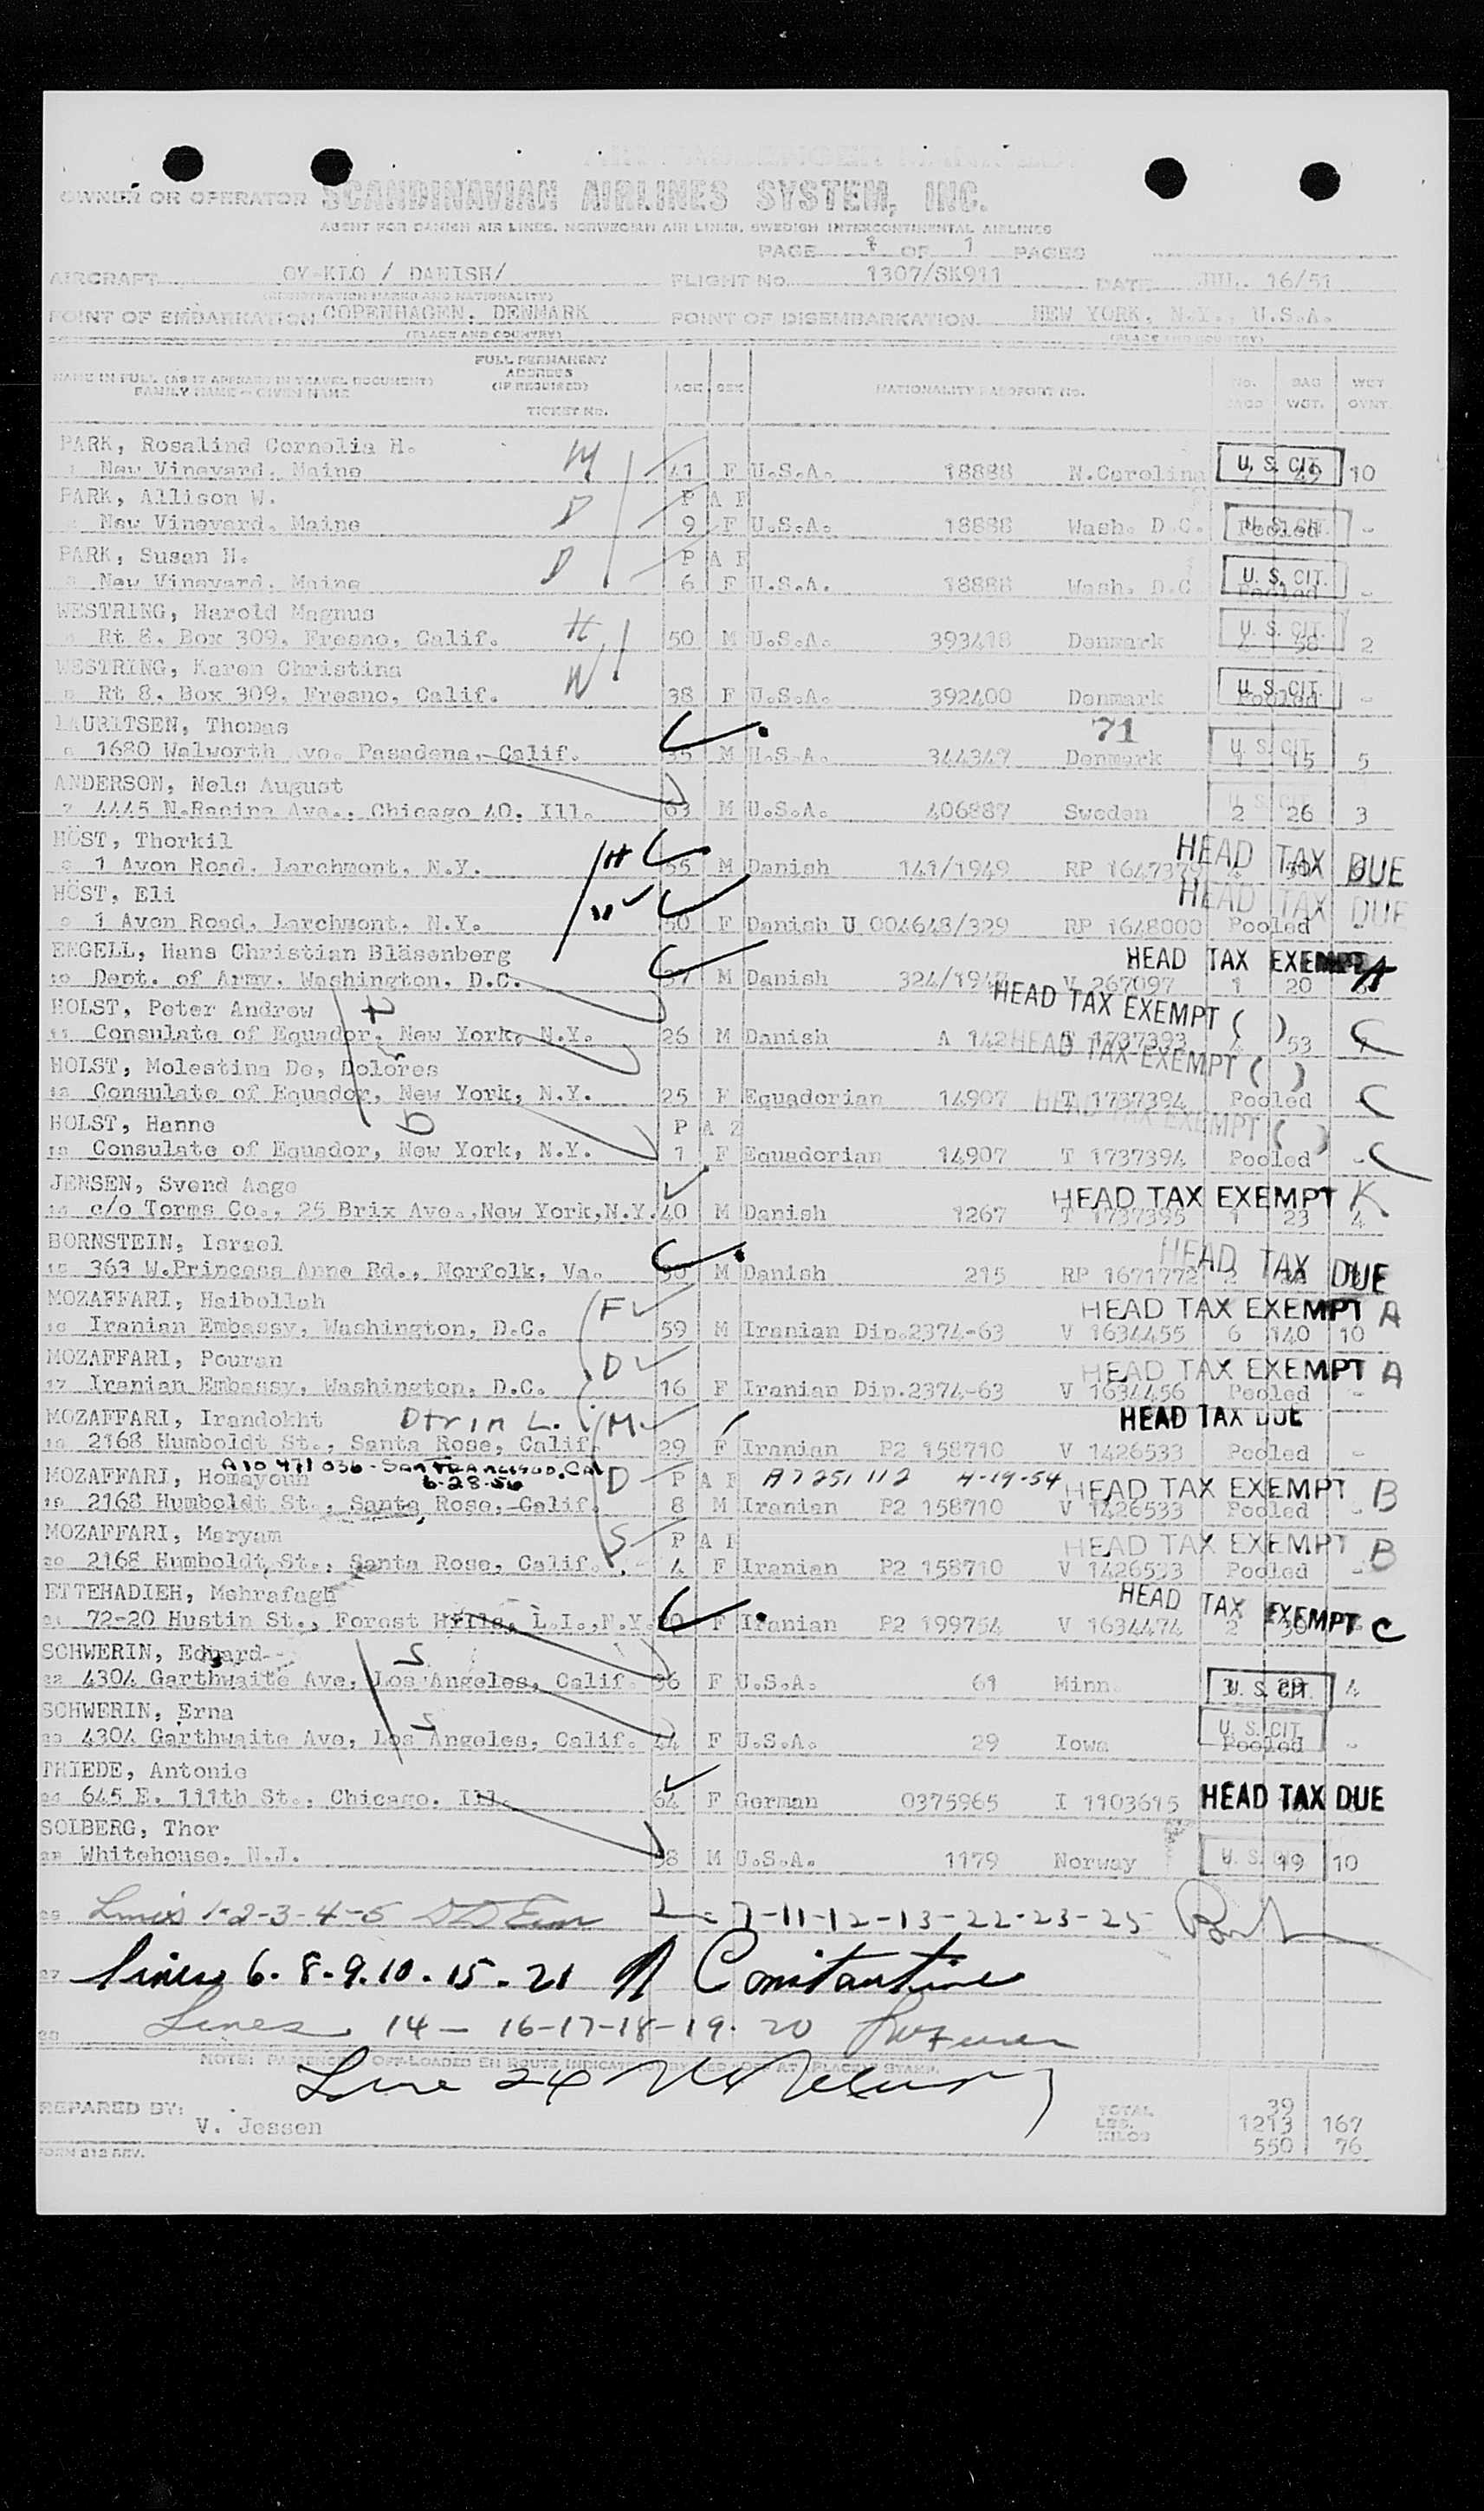 AIR PASSENGER MANIFEST
OWNER OR OPERATOR SCANDINAVIAN AIRLINES SYSTEM, INC.
AGENT FOR DANISH AIR LINES, NORWEGIAN AIR LINES, SWEDISH INTERCONTINENTAL AIRLINES
PAGE 1 OF 1 PAGES
AIRCRAFT OY-KLO / DANISH/ FLIGHT NO. 1307/SK911 DATE JUL. 16/51
(REGISTRATION MARKS AND NATIONALITY)
POINT OF EMBARKATION COPENHAGEN, DENMARK POINT OF DISEMBARKATION NEW YORK, N.Y., U.S.A.
(PLACE AND COUNTRY) (PLACE AND COUNTRY)
NAME IN FULL (AS IT APPEARS IN TRAVEL DOCUMENT) FAMILY NAME - GIVEN NAME FULL PERMANENT ADDRESS (IF REQUIRED) TICKET NO. AGE SEX NATIONALITY PASSPORT NO. NO. BAGG BAG WGT. WGT OVNT.
PARK, Rosalind Cornelia H. M
1 New Vineyard, Maine 41 F U.S.A. 18888 N.Carolina U. S. CIT. 49 10
PARK, Allison W. D P A R
New Vineyard, Maine 9 F U.S.A. 18888 Wash. D.C. Pooled U. S. CIT. -
PARK, Susan H. D P A R
3 New Vineyard, Maine 6 F U.S.A. 18888 Wash. D.C Pooled U. S. CIT. -
WESTRING, Harold Magnus H
Rt 8, Box 309, Fresno, Calif. 50 M U.S.A. 393418 Denmark U. S. CIT. 58 2
WESTRING, Karen Christina W
5 Rt 8, Box 309, Fresno, Calif. 38 F U.S.A. 392400 Denmark Pooled U. S. CIT. -
LAURITSEN, Thomas 71
6 1680 Walworth Ave. Pasadena, Calif. 35 M U.S.A. 344347 Denmark U. S. CIT. 1 15 5
ANDERSON, Nels August
7 4445 N.Racine Ave., Chicago 40, Ill. 63 M U.S.A. 406887 Sweden U. S. CIT. 2 26 3
HÖST, Thorkil H HEAD TAX DUE
8 1 Avon Road, Larchmont, N.Y. 55 M Danish 141/1949 RP 1647379
HÖST, Eli HEAD TAX DUE
9 1 Avon Road, Larchmont, N.Y. W 50 F Danish U 004648/329 RP 1648000 Pooled -
ENGELL, Hans Christian Bläsenberg HEAD TAX EXEMPT A
10 Dept. of Army, Washington, D.C. 37 M Danish 324/1947 V 267097 1 20
HOLST, Peter Andrew HEAD TAX EXEMPT ( )
11 Consulate of Equador, New York, N.Y. 26 M Danish A 142 T 1737393 4 53 C
HOLST, Molestina De, Dolores HEAD TAX EXEMPT ( )
12 Consulate of Equador, New York, N.Y. 25 F Equadorian 14907 T 1737394 Pooled C
HOLST, Hanne D P A R HEAD TAX EXEMPT ( )
13 Consulate of Equador, New York, N.Y. 1 F Equadorian 14907 T 1737394 Pooled - C
JENSEN, Svend Aage HEAD TAX EXEMPT K
14 c/o Torms Co., 25 Brix Ave., New York, N.Y. 40 M Danish 1267 T 1737395 1 23 4
BORNSTEIN, Israel HEAD TAX DUE
15 363 W.Princess Anne Rd., Norfolk, Va. 50 M Danish 215 RP 1671772 2
MOZAFFARI, Haibollah F HEAD TAX EXEMPT A
16 Iranian Embassy, Washington, D.C. 59 M Iranian Dip.2374-63 V 1634455 6 140 10
MOZAFFARI, Pouran D HEAD TAX EXEMPT A
17 Iranian Embassy, Washington, D.C. 16 F Iranian Dip.2374-63 V 1634456 Pooled -
MOZAFFARI, Irandokht Dtr in L. M HEAD TAX DUE
18 2168 Humboldt St., Santa Rose, Calif. 29 F Iranian P2 158710 V 1426533 Pooled -
A10 471 036 - San Francisco, Cal 6-28-56
MOZAFFARI, Homayoun D P A R A7251112 4-19-54 HEAD TAX EXEMPT B
19 2168 Humboldt St., Santa Rose, Calif. 8 M Iranian P2 158710 V 1426533 Pooled -
MOZAFFARI, Maryam S P A R HEAD TAX EXEMPT B
20 2168 Humboldt St., Santa Rose, Calif. 4 F Iranian P2 158710 V 1426533 Pooled -
ETTEHADIEH, Mehrafagh HEAD TAX EXEMPT C
21 72-20 Hustin St., Forest Hills, L.I., N.Y. F Iranian P2 199754 V 1634474 2 30
SCHWERIN, Edward S
22 4304 Garthwaite Ave, Los Angeles, Calif. 36 F U.S.A. 61 Minn. U. S. CIT. 4
SCHWERIN, Erna S
23 4304 Garthwaite Ave, Los Angeles, Calif. 44 F U.S.A. 29 Iowa U. S. CIT. Pooled -
THIEDE, Antonie
24 645 E. 111th St., Chicago, Ill. 64 F German 0375965 I 1103615 HEAD TAX DUE
SOLBERG, Thor
25 Whitehouse, N.J. 58 M U.S.A. 1179 Norway U. S. 19 10
26 Lines 1-2-3-4-5 L - 7-11-12-13-22-23-25
27 lines 6. 8. 9. 10. 15. 21 Constantine
28 Lines 14 - 16-17-18-19-20
NOTE: PASSENGERS OFF-LOADED EN ROUTE INDICATED BY PLACE STAMP.
Line 24
PREPARED BY: V. Jessen
TOTAL 39
LBS. 1213 167
KILOS 550 76
FORM 812 REV.